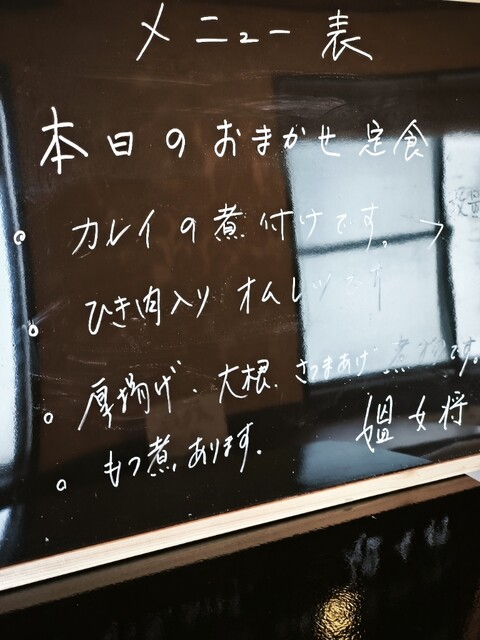 メニュー表
本日のおまかせ定食
カレイの煮付けです。
ひき肉入り オムレツです
厚揚げ、大根、さつまあげ 煮物です。
もつ煮、あります。
女将